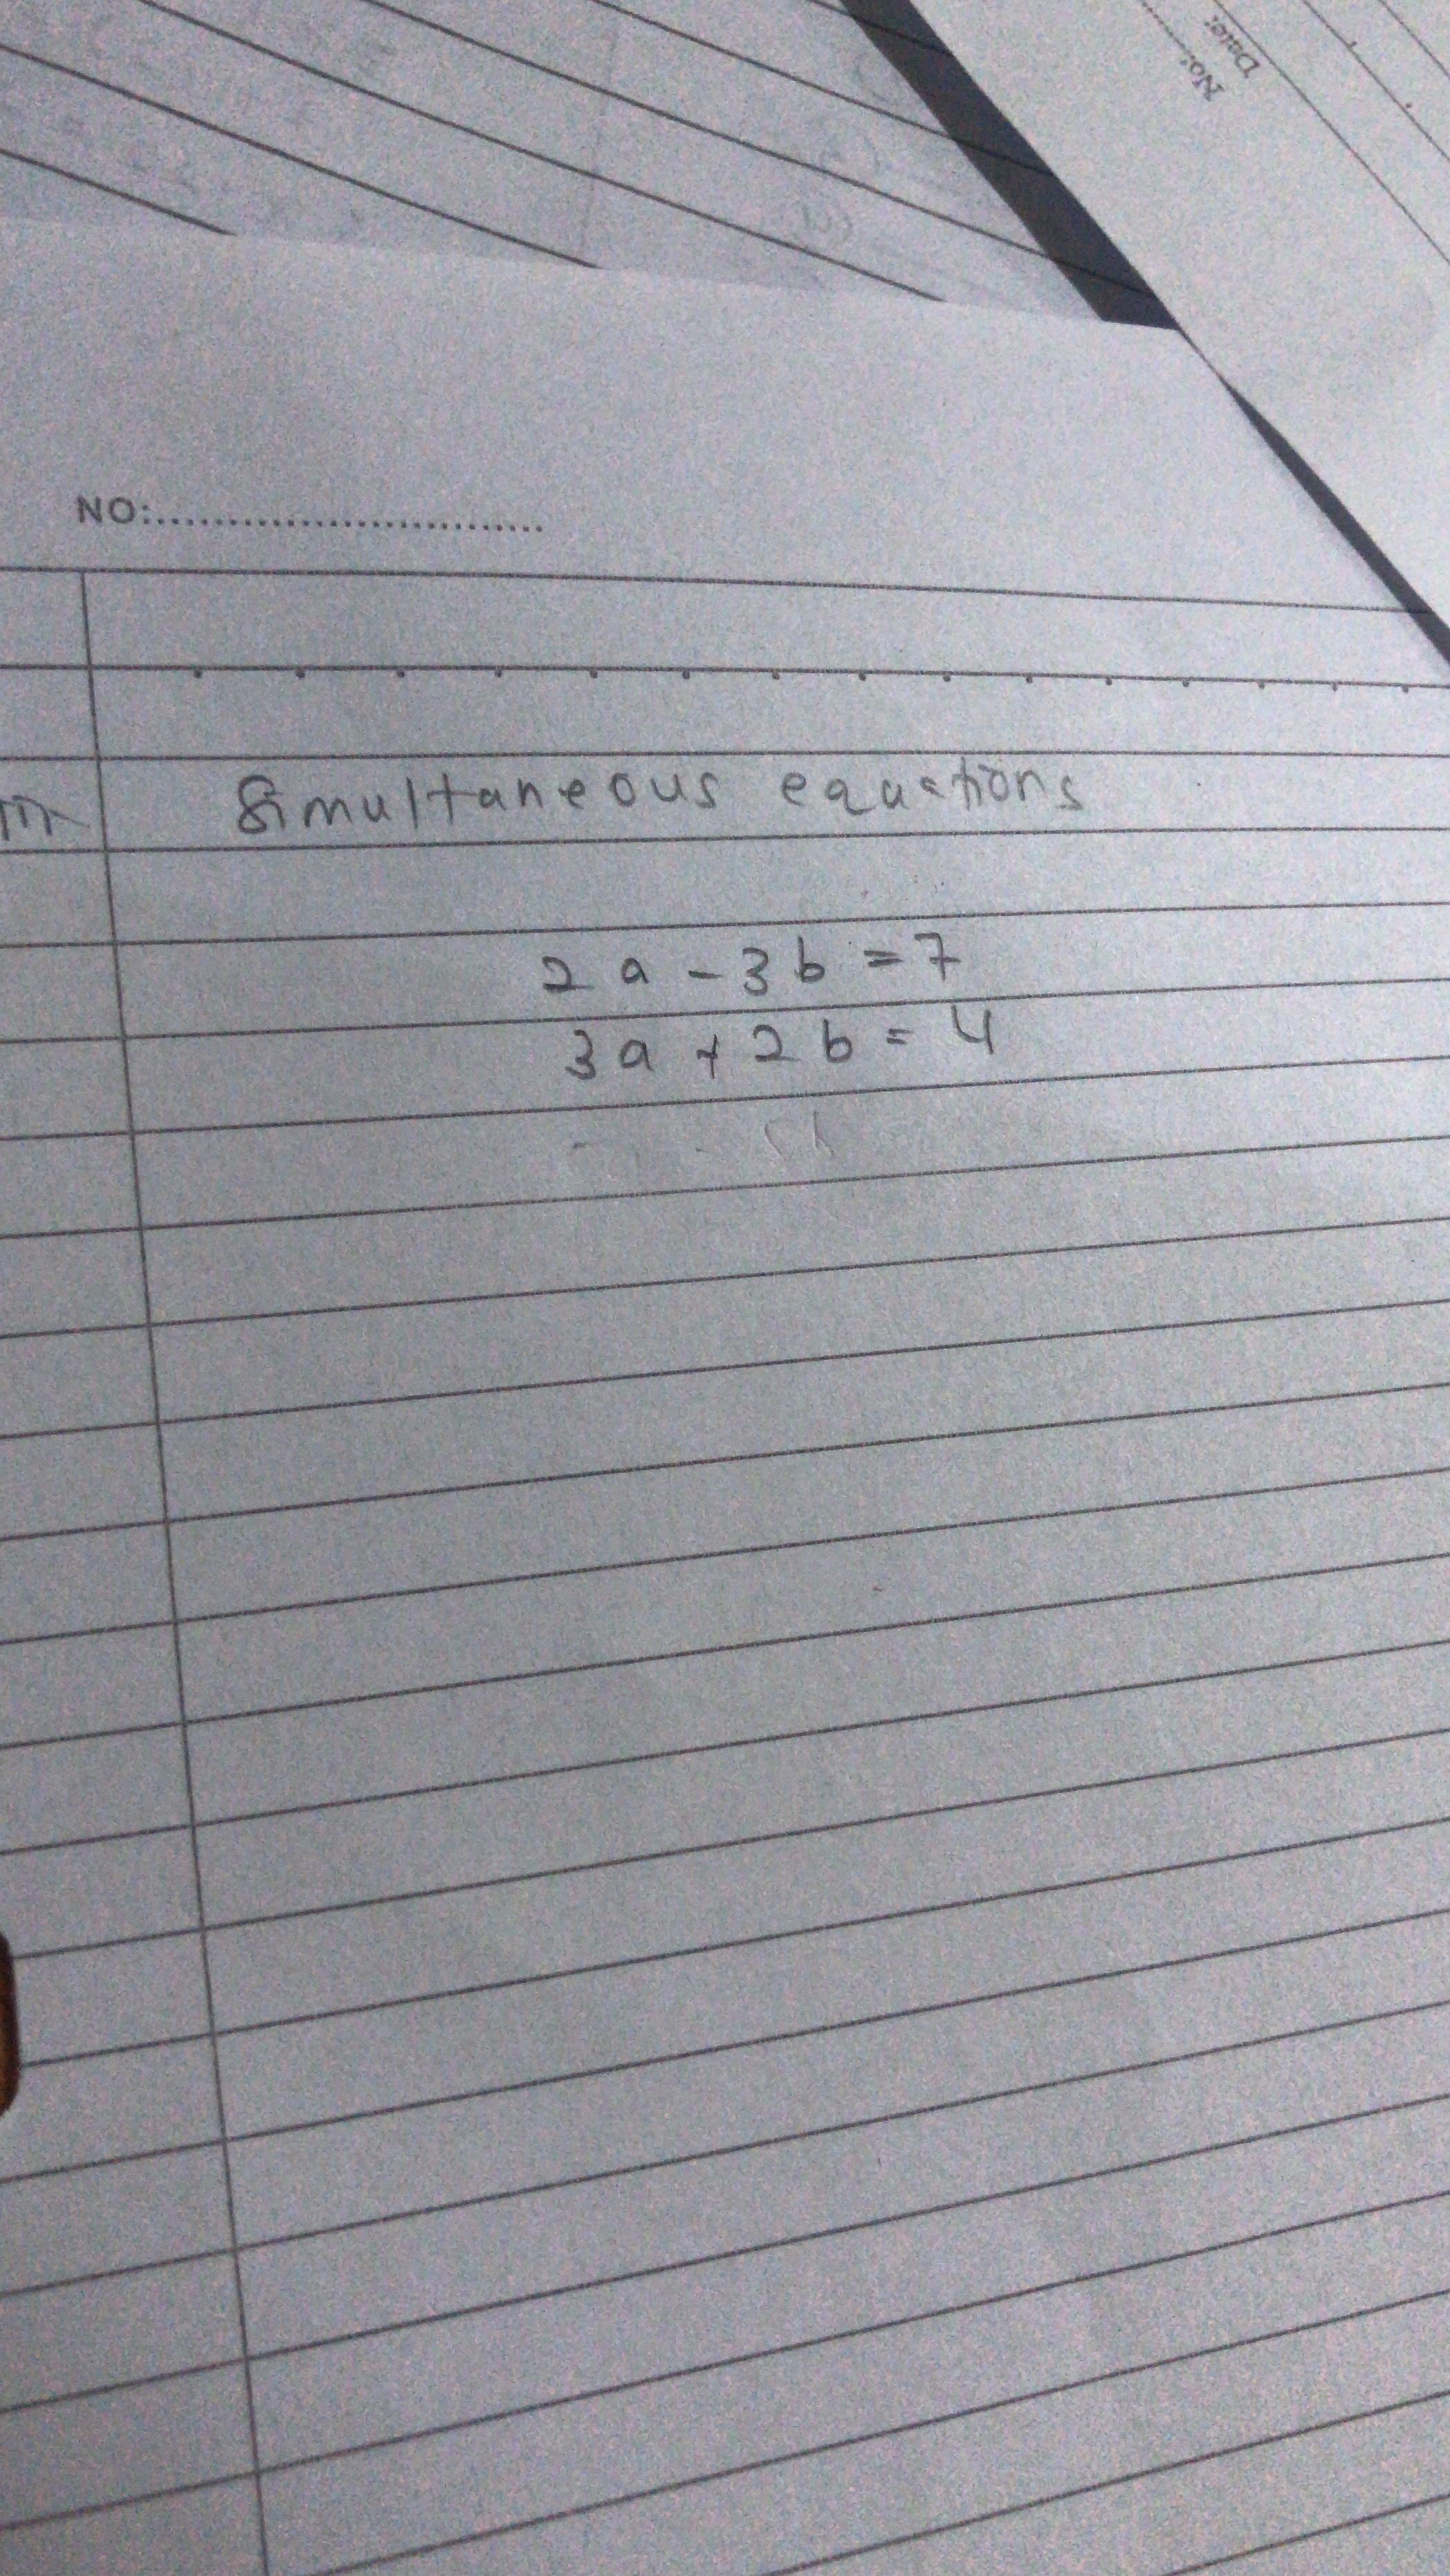 No:
Date:
NO:
Simultaneous equations
2a - 3b = 7
3a + 2b = 4